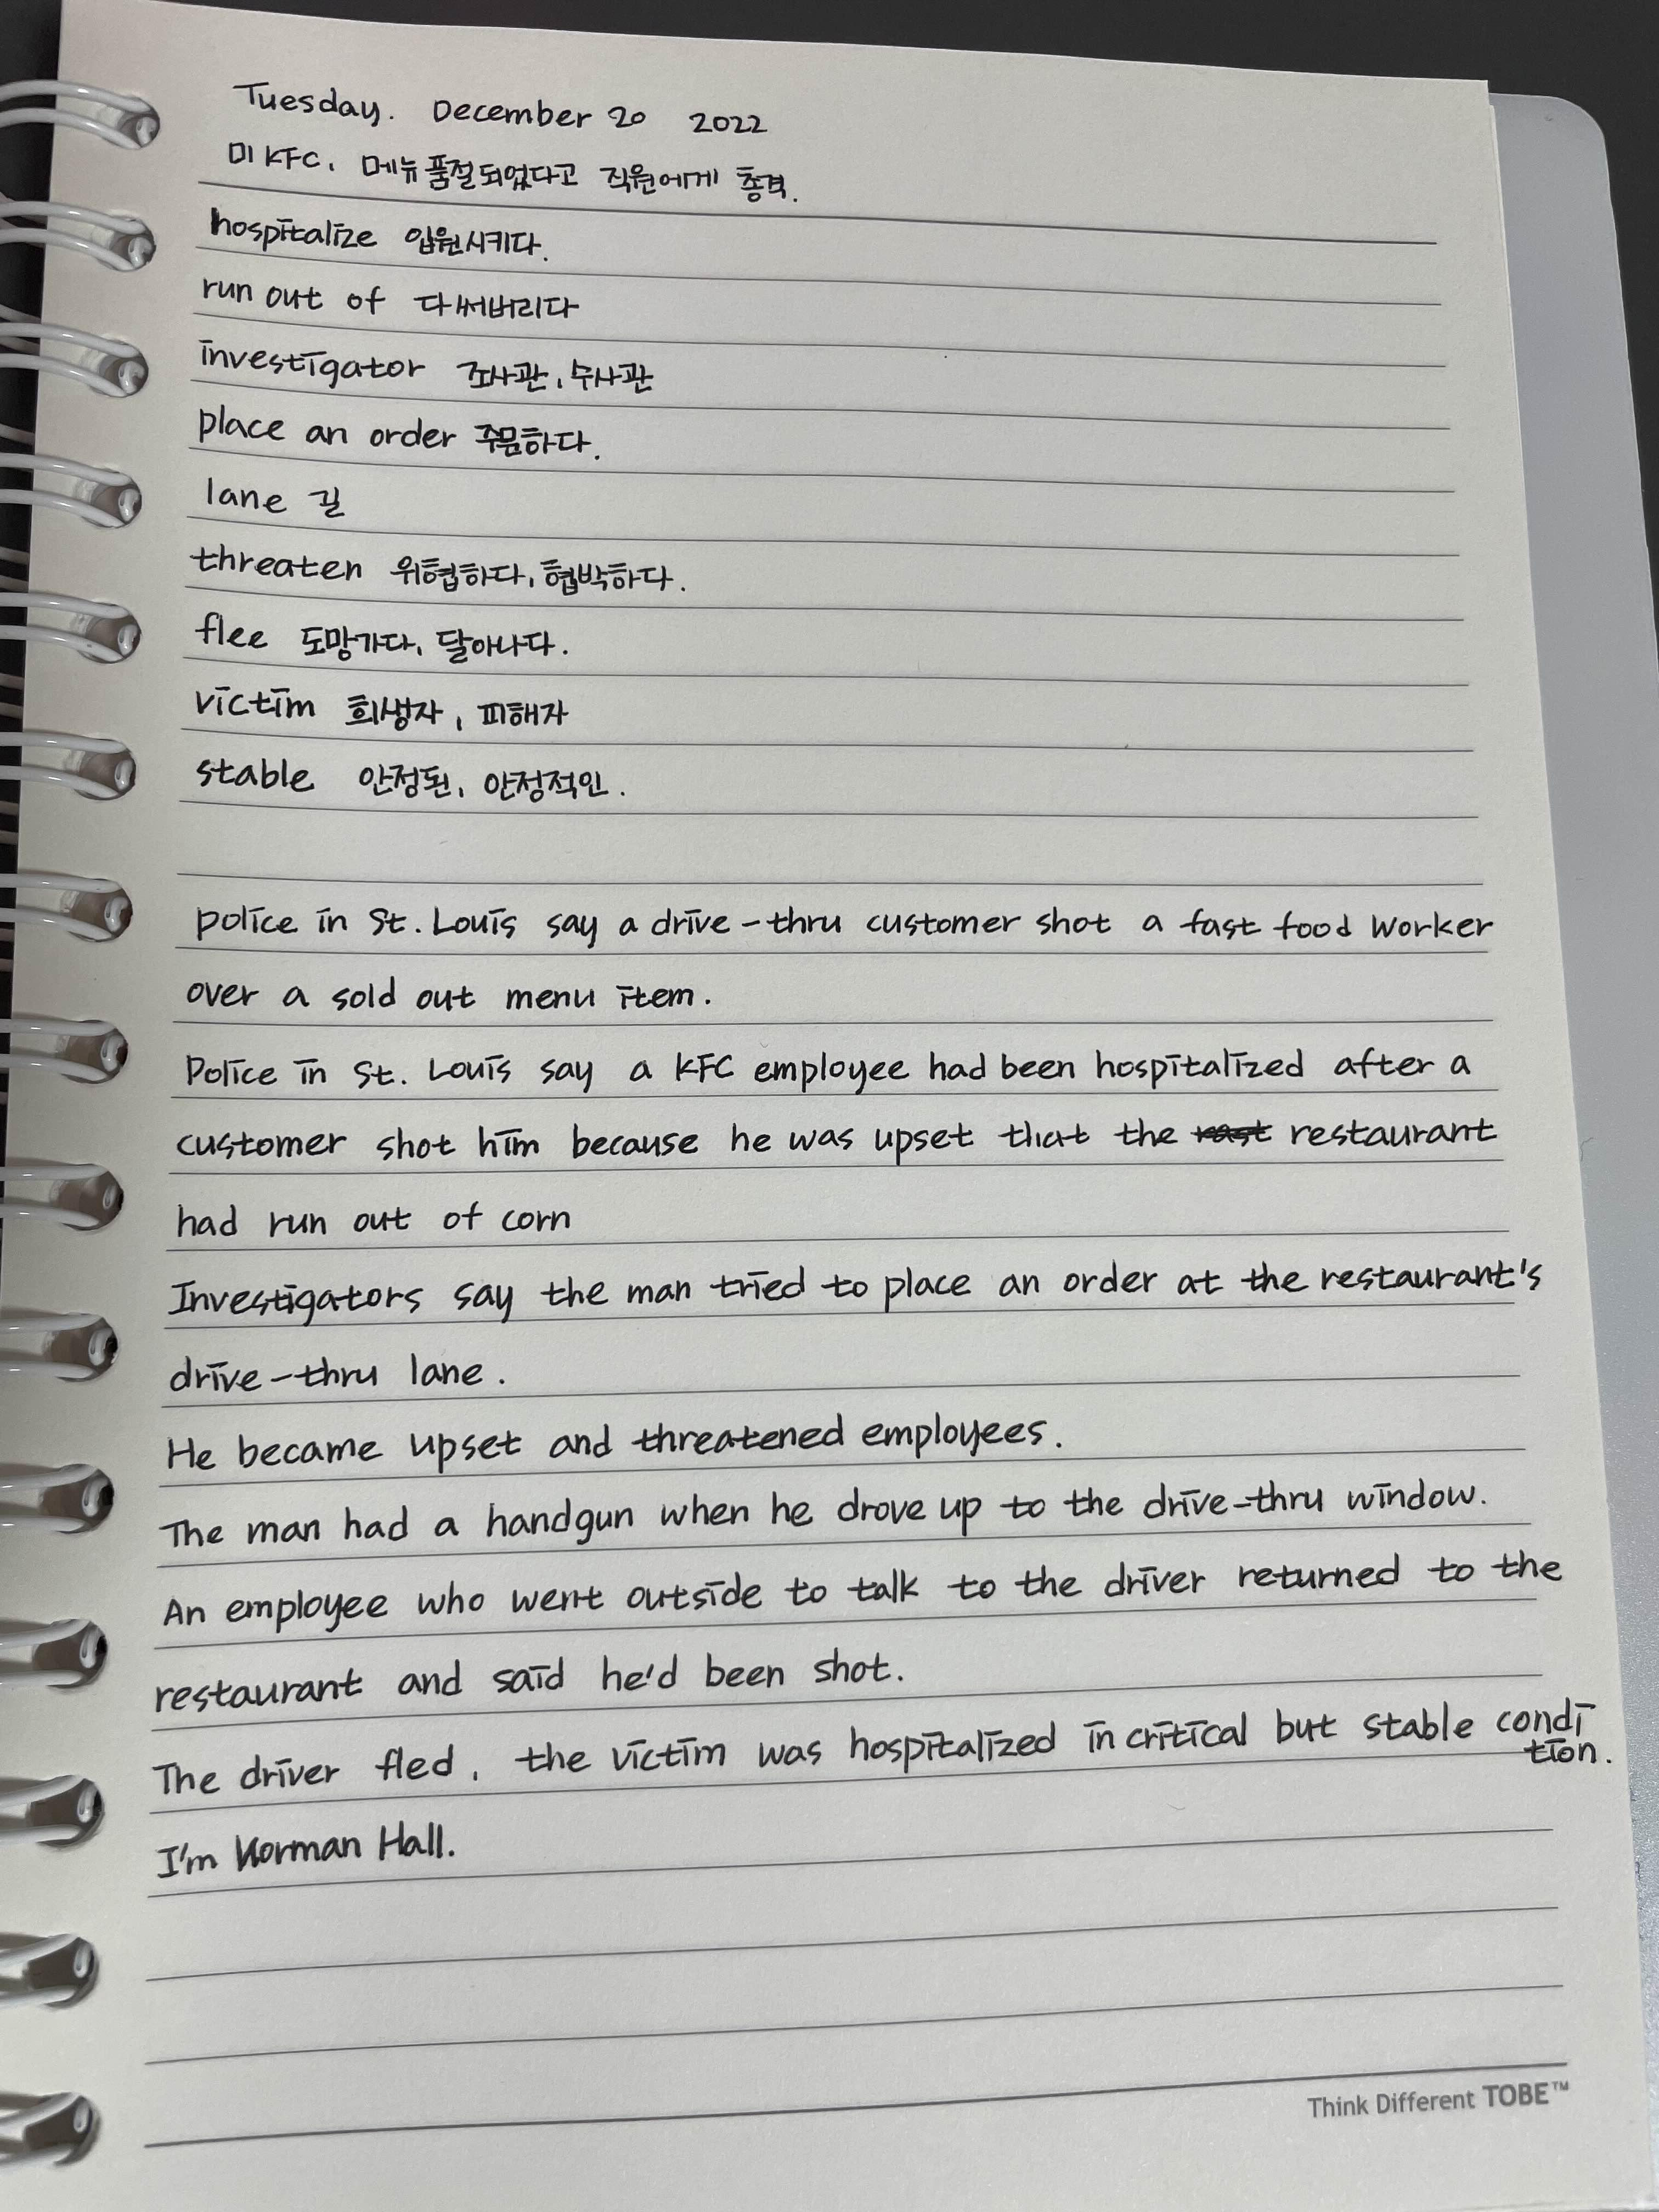 Tuesday. December 20 2022
미 KFC, 메뉴 품절되었다고 직원에게 총격.
hospitalize 입원시키다.
run out of 다써버리다
investigator 조사관, 수사관
place an order 주문하다.
lane 길
threaten 위협하다, 협박하다.
flee 도망가다, 달아나다.
victim 희생자, 피해자
stable 안정된, 안정적인.
police in St. Louis say a drive-thru customer shot a fast food worker
over a sold out menu item.
Police in St. Louis say a KFC employee had been hospitalized after a
customer shot him because he was upset that the restaurant
had run out of corn
Investigators say the man tried to place an order at the restaurant's
drive-thru lane.
He became upset and threatened employees.
The man had a handgun when he drove up to the drive-thru window.
An employee who went outside to talk to the driver returned to the
restaurant and said he'd been shot.
The driver fled, the victim was hospitalized in critical but stable condi
tion.
I'm Norman Hall.
Think Different TOBE™